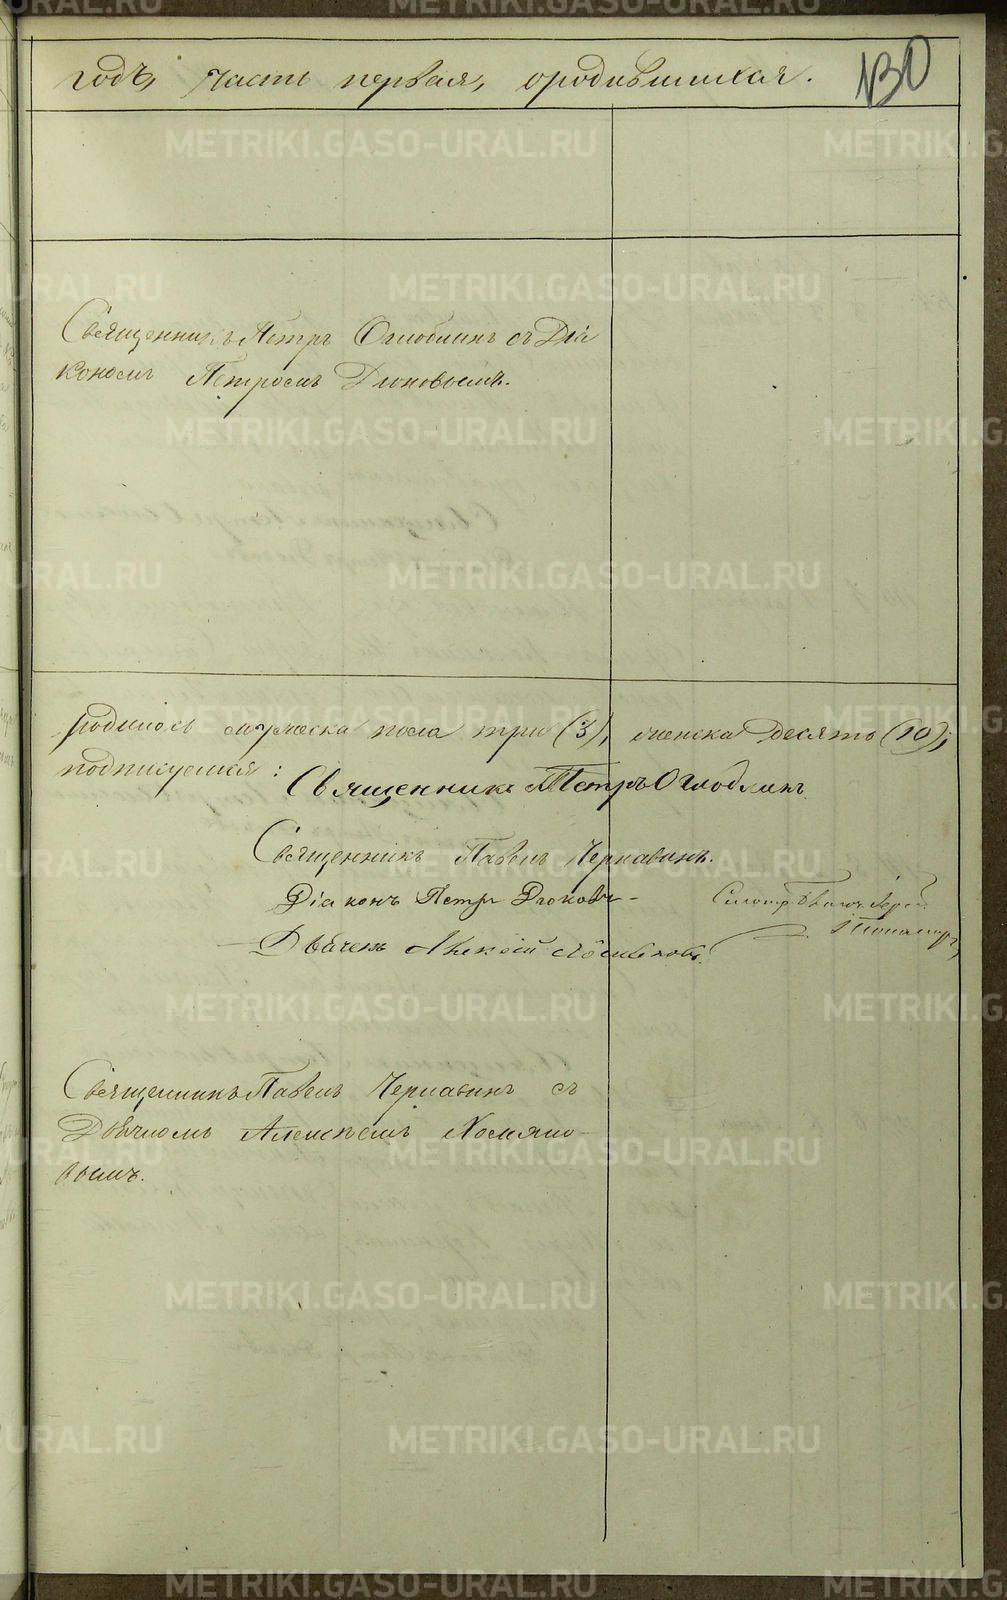 годъ, часть первая, о родившихся.
130
Священникъ Петръ Оглоблинъ съ Діа
кономъ Петромъ Дюковымъ.
родилось мужеска пола три (3), женска десять (10);
подписуемся:
Священникъ Петръ Оглоблинъ
Священникъ Павелъ Чернавинъ.
Діаконъ Петръ Дюковъ
Дьячекъ Алексѣй Хомяковъ.
Священникъ Павелъ Чернавинъ съ
Дьячкомъ Алексѣемъ Хомяко-
вымъ.
METRIKI.GASO-URAL.RU